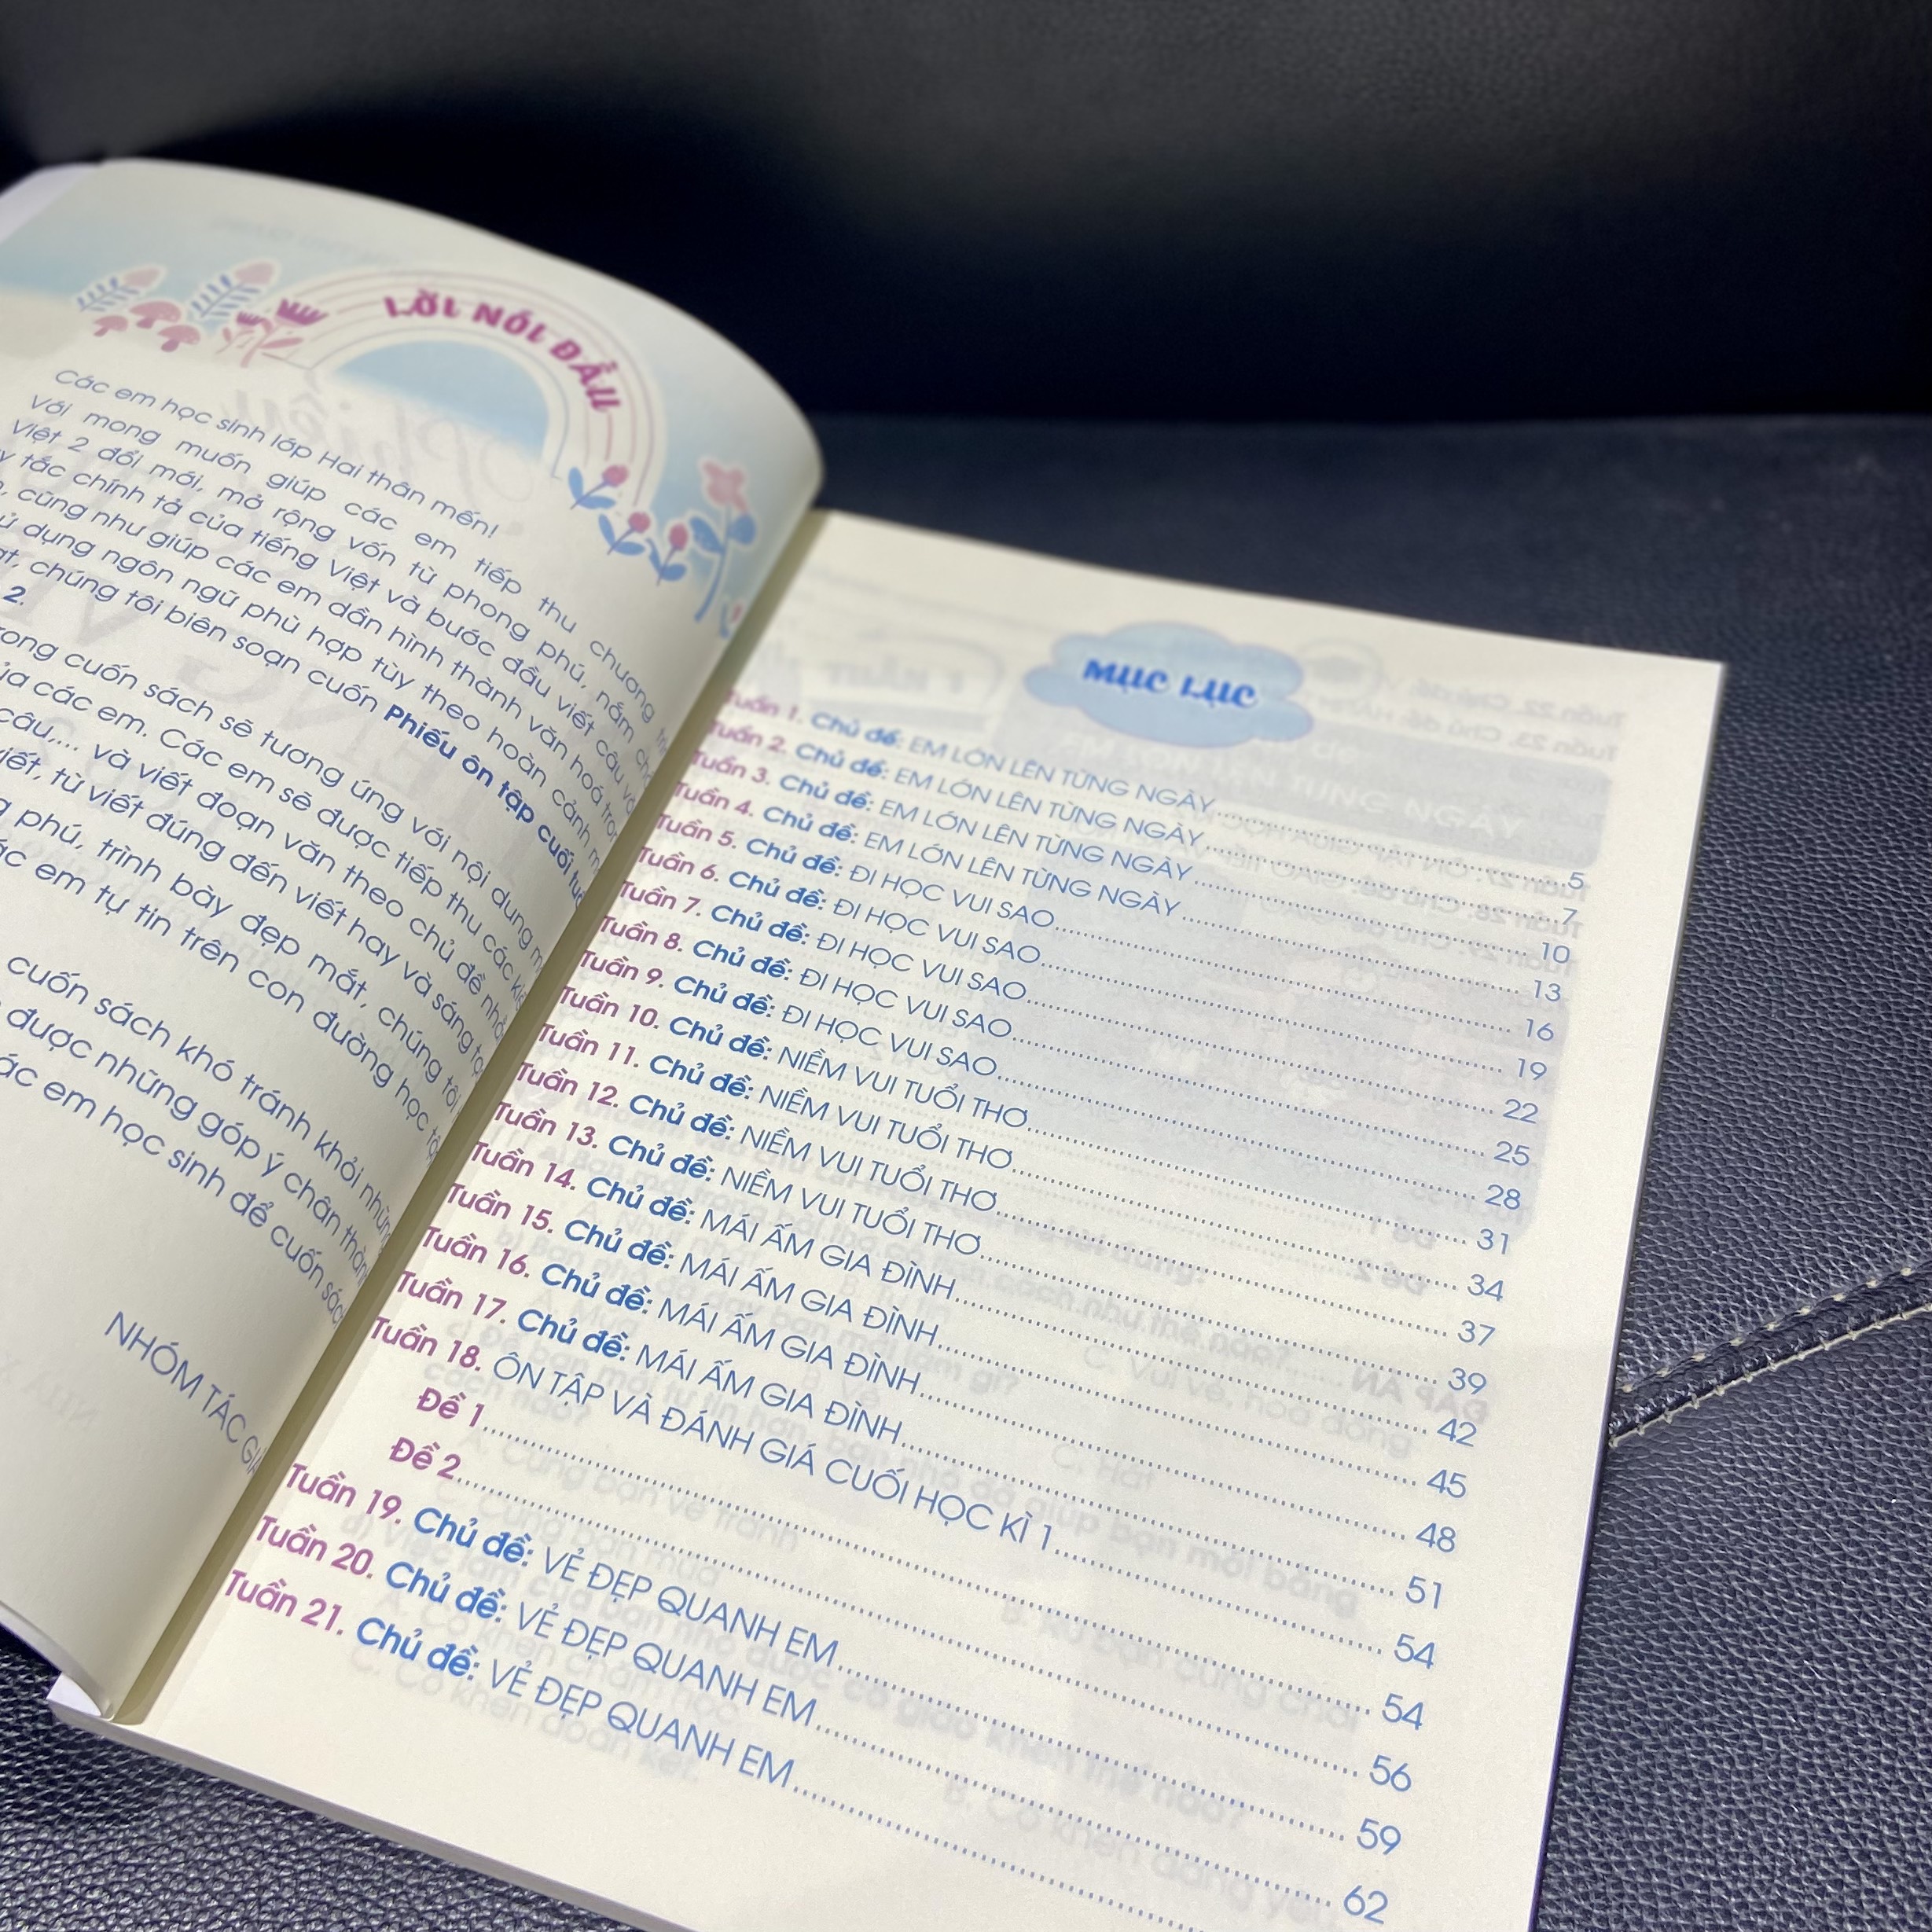 LỜI NÓI ĐẦU
Các em học sinh lớp Hai thân mến!
Với mong muốn giúp các em tiếp thu chương
Việt 2 đổi mới, mở rộng vốn từ phong phú, nắm
tắc chính tả của tiếng Việt và bước đầu viết câu
cũng như giúp các em dần hình thành văn hoá
dụng ngôn ngữ phù hợp tùy theo hoàn cảnh
chúng tôi biên soạn cuốn Phiếu ôn tập cuối
2.
cuốn sách sẽ tương ứng với nội dung
các em. Các em sẽ được tiếp thu các
câu,... và viết đoạn văn theo chủ đề
viết, từ viết đúng đến viết hay và sáng
phú, trình bày đẹp mắt, chúng tôi
em tự tin trên con đường học
cuốn sách khó tránh khỏi những
được những góp ý chân
em học sinh để cuốn sách
NHÓM TÁC GIẢ
MỤC LỤC
Tuần 1. Chủ đề: EM LỚN LÊN TỪNG NGÀY..........5
Tuần 2. Chủ đề: EM LỚN LÊN TỪNG NGÀY..........7
Tuần 3. Chủ đề: EM LỚN LÊN TỪNG NGÀY..........10
Tuần 4. Chủ đề: EM LỚN LÊN TỪNG NGÀY..........13
Tuần 5. Chủ đề: ĐI HỌC VUI SAO..........16
Tuần 6. Chủ đề: ĐI HỌC VUI SAO..........19
Tuần 7. Chủ đề: ĐI HỌC VUI SAO..........22
Tuần 8. Chủ đề: ĐI HỌC VUI SAO..........25
Tuần 9. Chủ đề: ĐI HỌC VUI SAO..........28
Tuần 10. Chủ đề: NIỀM VUI TUỔI THƠ..........31
Tuần 11. Chủ đề: NIỀM VUI TUỔI THƠ..........34
Tuần 12. Chủ đề: NIỀM VUI TUỔI THƠ..........37
Tuần 13. Chủ đề: NIỀM VUI TUỔI THƠ..........39
Tuần 14. Chủ đề: MÁI ẤM GIA ĐÌNH..........42
Tuần 15. Chủ đề: MÁI ẤM GIA ĐÌNH..........45
Tuần 16. Chủ đề: MÁI ẤM GIA ĐÌNH..........48
Tuần 17. Chủ đề: MÁI ẤM GIA ĐÌNH..........51
Tuần 18. ÔN TẬP VÀ ĐÁNH GIÁ CUỐI HỌC KÌ 1..........54
Đề 1..........54
Đề 2..........56
Tuần 19. Chủ đề: VẺ ĐẸP QUANH EM..........59
Tuần 20. Chủ đề: VẺ ĐẸP QUANH EM..........62
Tuần 21. Chủ đề: VẺ ĐẸP QUANH EM..........